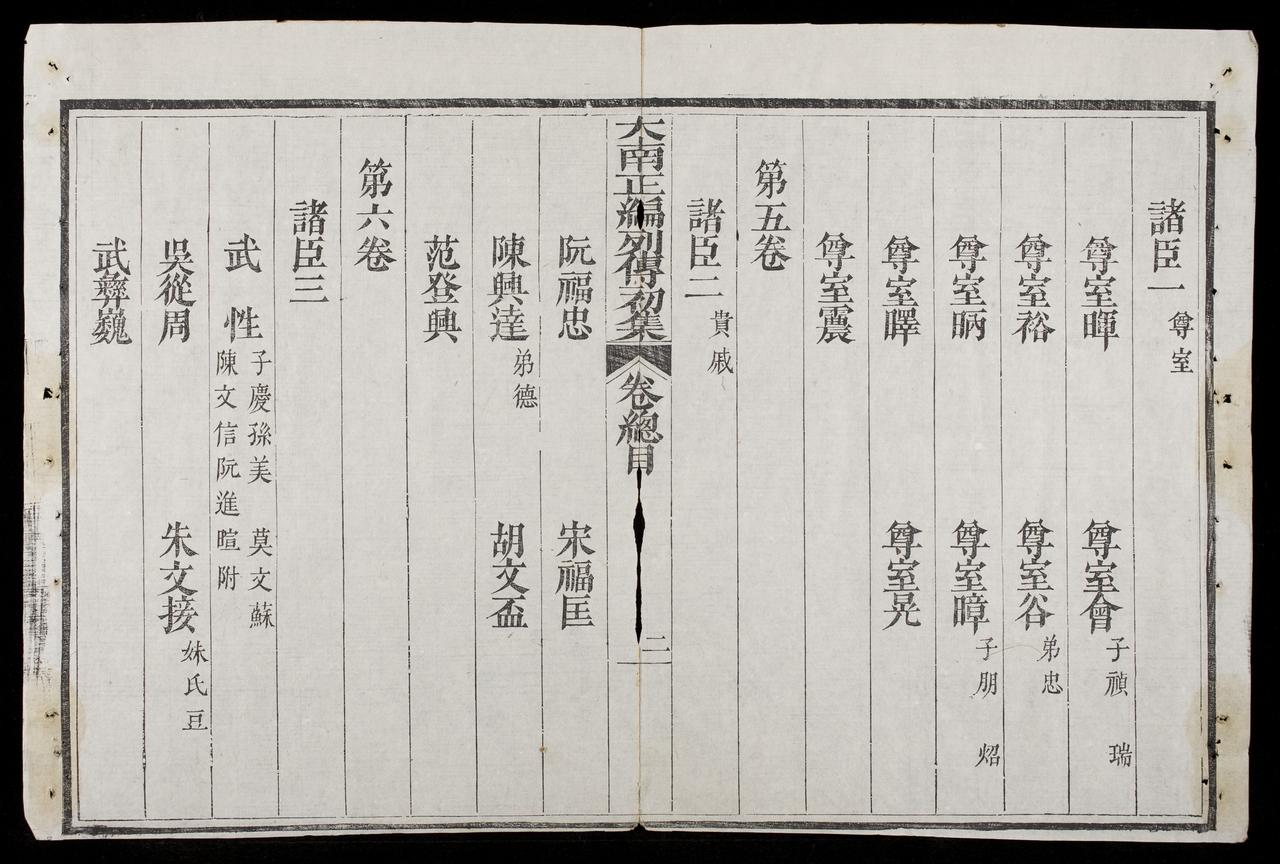 諸臣一 尊室
尊室暉 尊室會 子禎 瑞
尊室裕 尊室谷 弟忠
尊室昞 尊室暲 子朋 炤
尊室㬙 尊室晃
尊室震
第五卷
諸臣二 貴戚
大南正編列傳初集 卷總目 二
阮福忠 宋福匡
陳興達 弟德 胡文盃
范登興
第六卷
諸臣三
武性 子慶孫美 莫文蘇
陳文信阮進暄附
吳從周 朱文接 妹氏豆
武彞巍